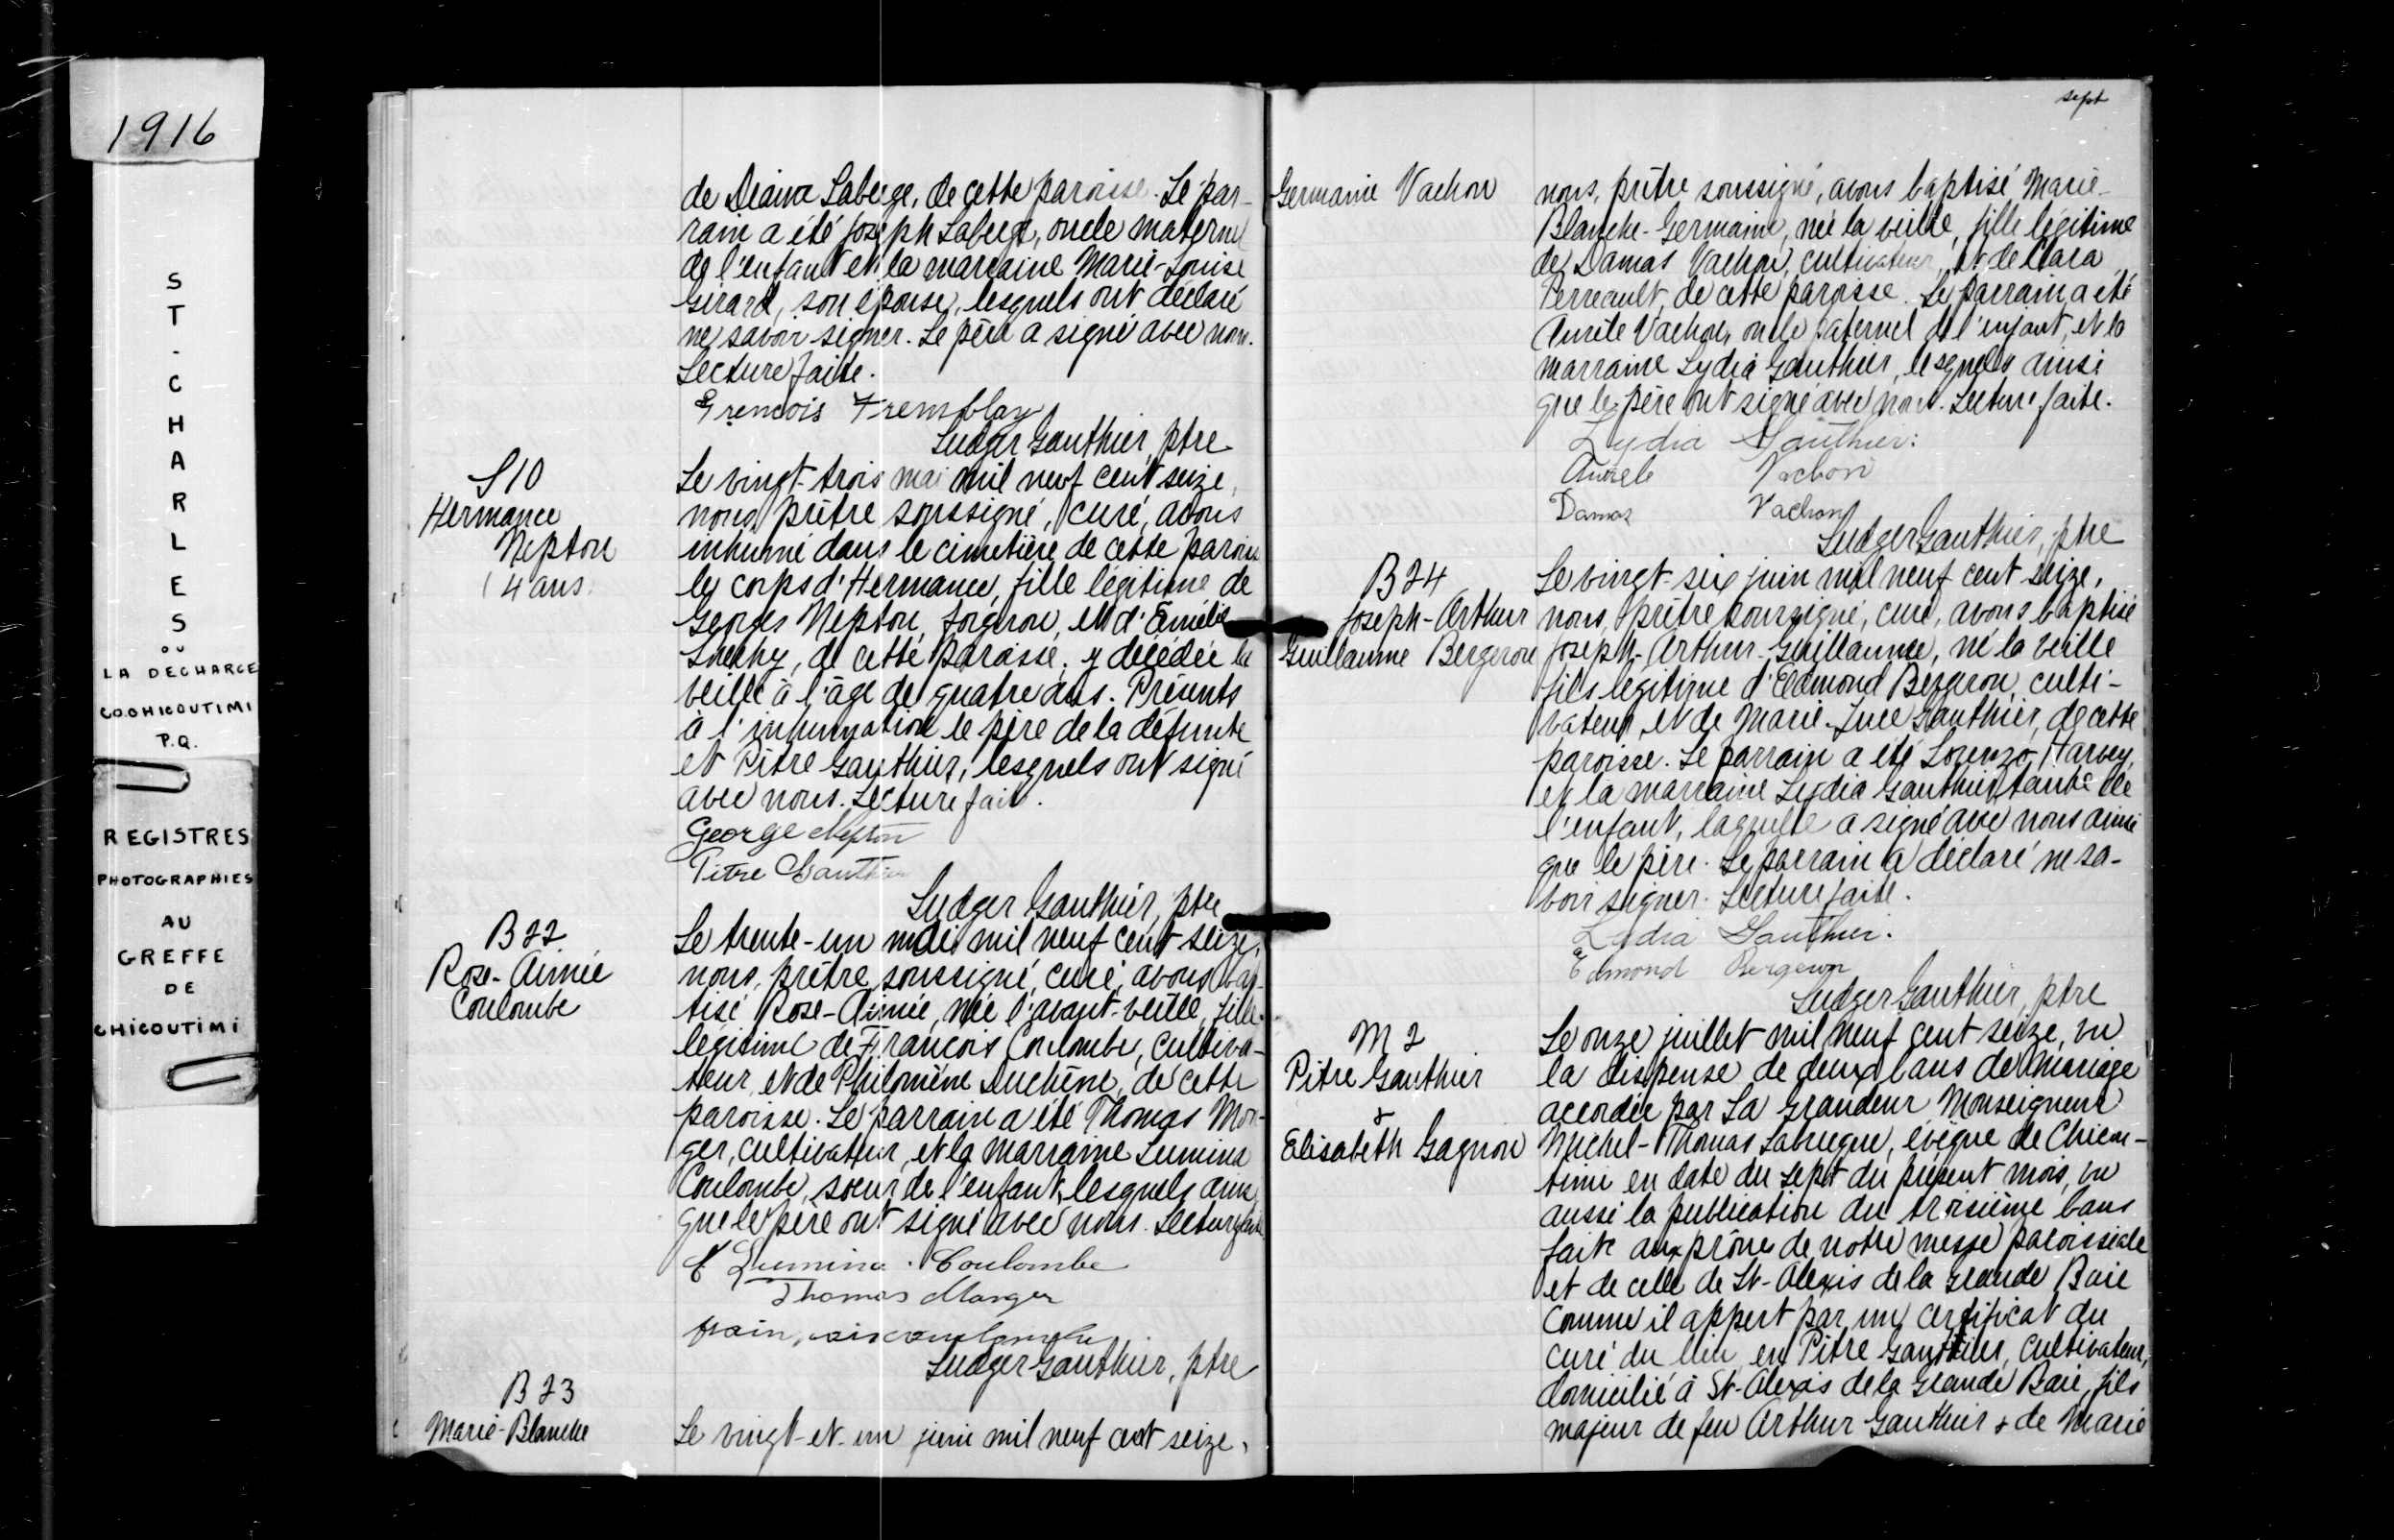 1916
S
T
-
C
H
A
R
L
E
S
OU
LA DECHARGE
CO. CHICOUTIMI
P.Q.
REGISTRES
PHOTOGRAPHIES
AU
GREFFE
DE
CHICOUTIMI
de Diana Laberge, de cette paroisse. Le par-
rain a été Joseph Laberge, oncle maternel
de l'enfant et la marraine Marie-Louise
Girard, son épouse, lesquels ont déclaré
ne savoir signer. Le père a signé avec nous.
Lecture faite.
Tremblay
Ludger Gauthier, ptre
S 10
Hermance
Nepton
4 ans
Le vingt-trois mai mil neuf cent seize,
nous, prêtre soussigné, curé, avons
inhumé dans le cimetière de cette paroisse
le corps d'Hermance, fille légitime de
Georges Nepton, forgeron, et d'Émélie
de cette paroisse, y décédée la
veille à l'âge de quatre ans. Présents
à l'inhumation le père de la défunte
et Pitre Gauthier, lesquels ont signé
avec nous. Lecture faite.
George Nepton
Pitre Gauthier
Ludger Gauthier, ptre
B 22
Rose-Aimée
Coulombe
Le trente-un mai mil neuf cent seize,
nous, prêtre soussigné, curé, avons bap-
tisé Rose-Aimée, née l'avant-veille, fille
légitime de François Coulombe, cultiva-
teur, et de Philomène Duchêne, de cette
paroisse. Le parrain a été Thomas Mon-
ger, cultivateur, et la marraine Lumina
Coulombe, soeur de l'enfant, lesquels ainsi
que le père ont signé avec nous. Lecture faite.
Lumina Coulombe
Thomas Monger
Ludger Gauthier, ptre
B 23
Marie-Blanche
Le vingt-et-un juin mil neuf cent seize,
sept
Germaine Vachon
nous, prêtre soussigné, avons baptisé Marie-
Blanche-Germaine, née la veille, fille légitime
de Damas Vachon, cultivateur, et de Clara
Perreault, de cette paroisse. Le parrain a été
Aurèle Vachon, oncle paternel de l'enfant, et la
marraine Lydia Gauthier, lesquels ainsi
que le père ont signé avec nous. Lecture faite.
Lydia Gauthier.
Aurèle Vachon
Damas Vachon
Ludger Gauthier, ptre
B 24
Joseph-Arthur
Guillaume Bergeron
Le vingt-six juin mil neuf cent seize,
nous, prêtre soussigné, curé, avons baptisé
Joseph-Arthur-Guillaume, né la veille
fils légitime d'Edmond Bergeron, culti-
vateur, et de Marie-Luce Gauthier, de cette
paroisse. Le parrain a été Lorenzo Harvey,
et la marraine Lydia Gauthier, tante de
l'enfant, laquelle a signé avec nous ainsi
que le père. Le parrain a déclaré ne sa-
voir signer. Lecture faite.
Lydia Gauthier.
Edmond Bergeron
Ludger Gauthier, ptre
M 2
Pitre Gauthier
&
Elisabeth Gagnon
Le onze juillet mil neuf cent seize, vu
la dispense de deux bans de mariage
accordée par Sa Grandeur Monseigneur
Michel-Thomas Labrecque, évêque de Chicou-
timi en date du sept du présent mois, vu
aussi la publication du troisième bans
faite aux prônes de notre messe paroissiale
et de celle de St-Alexis de la Grande Baie
comme il appert par un certificat du
curé du lieu, en Pitre Gauthier, cultivateur,
domicilié à St-Alexis de la Grande Baie, fils
majeur de feu Arthur Gauthier & de Marie